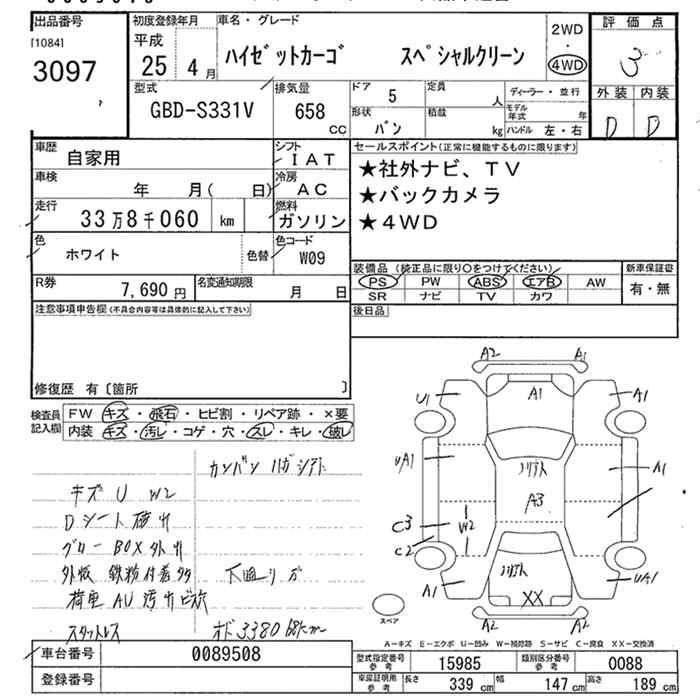 出品番号
[1084]
3097
初度登録年月
平成
25 4 月
車名・グレード
ハイゼットカーゴ スペシャルクリーン
2WD
・
4WD
評価点
3
外装 内装
D D
型式
GBD-S331V
排気量
658
cc
ドア
5
定員
人
形状
バン
積載
kg
ディーラー・並行
モデル年式 年
ハンドル 左・右
車歴
自家用
シフト
IAT
車検
年 月( 日)
冷房
AC
走行
33万8千060 km
燃料
ガソリン
色
ホワイト
色替
色コード
W09
R券
7,690 円
名変通知期限
月 日
セールスポイント(正常に機能するものに限ります)
★社外ナビ、TV
★バックカメラ
★4WD
装備品 (純正品に限り○をつけてください)
PS PW ABS エアB AW
SR ナビ TV カワ
新車保証書
有・無
後日品
注意事項申告欄(不具合内容等は具体的に記入して下さい)
修復歴 有〔箇所 〕
検査員記入欄
FW キズ・飛石・ヒビ割・リペア跡・×要
内装 キズ・汚レ・コゲ・穴・スレ・キレ・破レ
キズ U W2
Dシート破れ
グローBOX外れ
外板 鉄粉付着
荷車 AU 汚れ
スタットレス
下廻りサビ
A2 A1
U1 A1 A1
UA1 A1
A3
C3 W2
C2
A1 XX UA1
A2 A2
スペア
A-キズ E-エクボ U-凹み W-補修跡 S-サビ C-腐食 XX-交換済
車台番号 0089508
登録番号
型式指定番号 参考 15985
類別区分番号 参考 0088
車庫証明用 参考 長さ 339 cm 幅 147 cm 高さ 189 cm